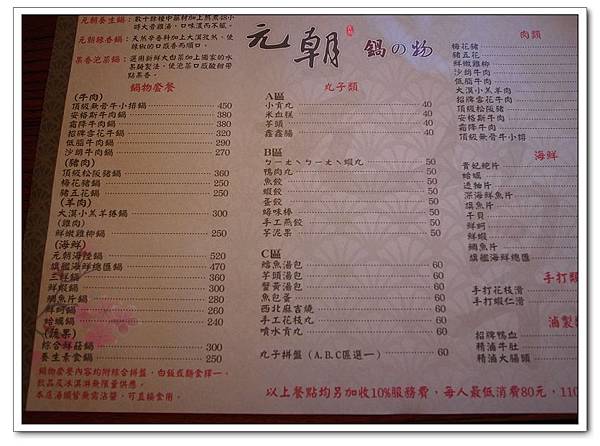 元朝養生鍋:數十餘種中藥材加上熬煮48小
時大骨雞湯，口味濃而不膩。
元朝麻香鍋:天然辛香料加上大漠孜然，使
辣椒的口感香而順口。
果香泡菜鍋:選用新鮮大白菜加上獨家的水
果醃製法，使泡菜口感酸甜帶
點果香。
元朝 鍋の物
鍋物套餐
(牛肉)
頂級無骨牛小排鍋 450
安格斯牛肉鍋 380
霜降牛肉鍋 320
招牌雪花牛鍋 320
低脂牛肉鍋 290
沙朗牛肉鍋 270
(豬肉)
頂級松阪豬鍋 360
梅花豬鍋 250
豬五花鍋 250
(羊肉)
大漠小羔羊捲鍋 300
(雞肉)
鮮嫩雞柳鍋 250
(海鮮)
元朝海陸鍋 520
旗艦海鮮總匯鍋 470
三鮮鍋 360
鮮蝦鍋 300
鯛魚片鍋 280
鮮蚵鍋 260
蛤蠣鍋 240
(蔬果)
綜合鮮菇鍋 300
養生素食鍋 250
鍋物套餐內容均附綜合拼盤，白飯或麵食擇一。
飲品及冰淇淋無限量供應。
本店湯頭皆無需沾醬，可直接食用。
丸子類
A區
小貢丸 40
米血糕 40
芋頭 40
鑫鑫腸 40
B區
ㄅㄧㄤˋㄅㄧㄤˋ蝦丸 50
鴨肉丸 50
魚餃 50
蝦餃 50
蛋餃 50
蟳味棒 50
手工燕餃 50
芋泥果 50
C區
鱈魚湯包 60
芋頭湯包 60
蟹黃湯包 60
魚包蛋 60
西北麻吉燒 60
手工花枝丸 60
噴水貢丸 60
丸子拼盤 (A.B.C區選一) 60
肉類
梅花豬
豬五花
鮮嫩雞柳
沙朗牛肉
低脂牛肉
大漠小羔羊
招牌雪花牛肉
頂級松阪豬
安格斯牛肉
霜降牛肉
頂級無骨牛小排
海鮮
貴妃鮑片
蛤蠣
透抽片
深海鮮魚片
旗魚片
干貝
鮮蚵
鮮蝦
鯛魚片
旗艦海鮮總匯
手打類
手打花枝滑
手打蝦仁滑
滷製
招牌鴨血
精滷牛肚
精滷大腸頭
以上餐點均另加收10%服務費，每人最低消費80元，110